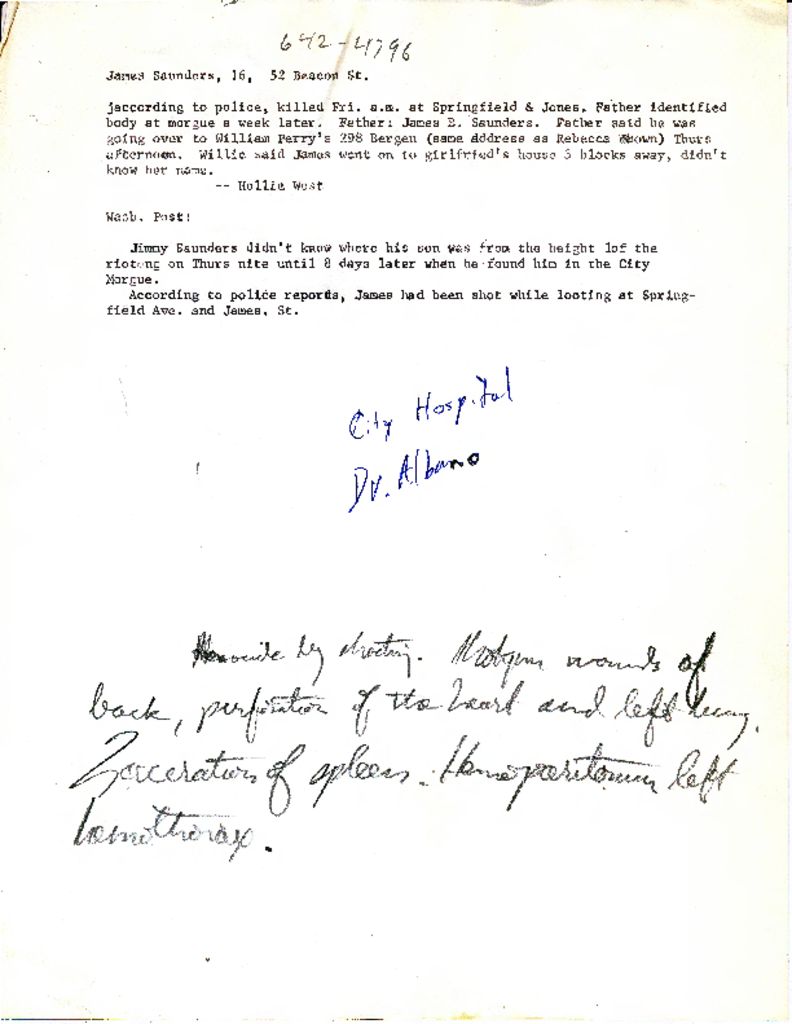 642-4796
James Saunders, 16, 52 Beacon St.
jaccording to police, killed Fri. a.m. at Springfield & Jones. Father identified
body at morgue a week later. Father: James E. Saunders. Father said he was
going over to William Perry's 298 Bergen (same address as Rebecca Brown) Thurs
afternoon. Willie said James went on to girlfried's house 3 blocks away, didn't
know her name.
-- Hollie West
Wash. Post:
Jimmy Saunders didn't know where his son was from the height 1of the
rioteng on Thurs nite until 8 days later when he found him in the City
Morgue.
According to police reports, James had been shot while looting at Spring-
field Ave. and James, St.
City Hospital
Dr. Albano
Homocide by shooting. Shotgun wounds of
back, perforation of the heart and left lung.
Laceration of spleen. Hemoperitoneum left
hemothorax.